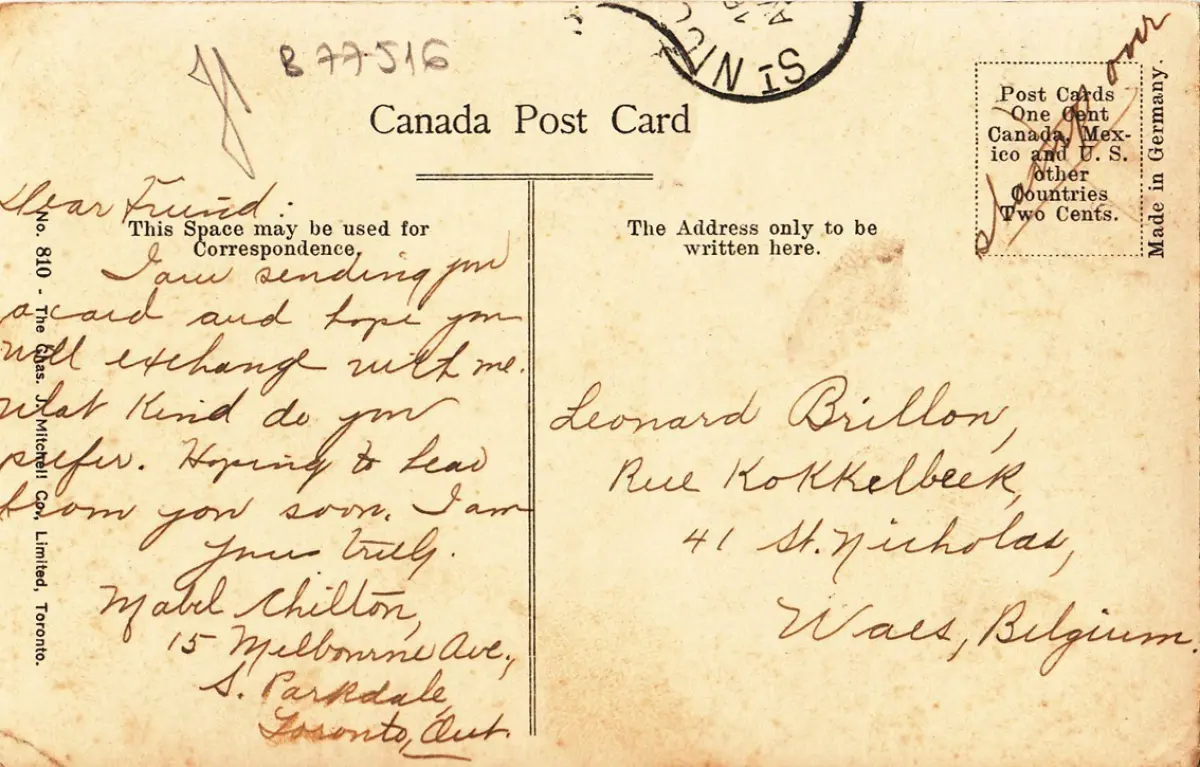 B 77516
ST NICO
Canada Post Card
Stamp over
Post Cards
One Cent
Canada, Mex-
ico and U. S.
other
Countries
Two Cents.
Made in Germany.
This Space may be used for
Correspondence.
The Address only to be
written here.
No. 810 - The Chas. J. Mitchell Co., Limited, Toronto.
Dear Friend:
I am sending you
a card and hope you
will exchange with me.
What kind do you
prefer. Hoping to hear
from you soon. I am
Yours truly.
Mabel Chilton,
15 Melbourne Ave.,
S. Parkdale,
Toronto, Ont.
Leonard Brillon,
Rue Kokkelbeek,
41 St. Nicholas,
Waes, Belgium.